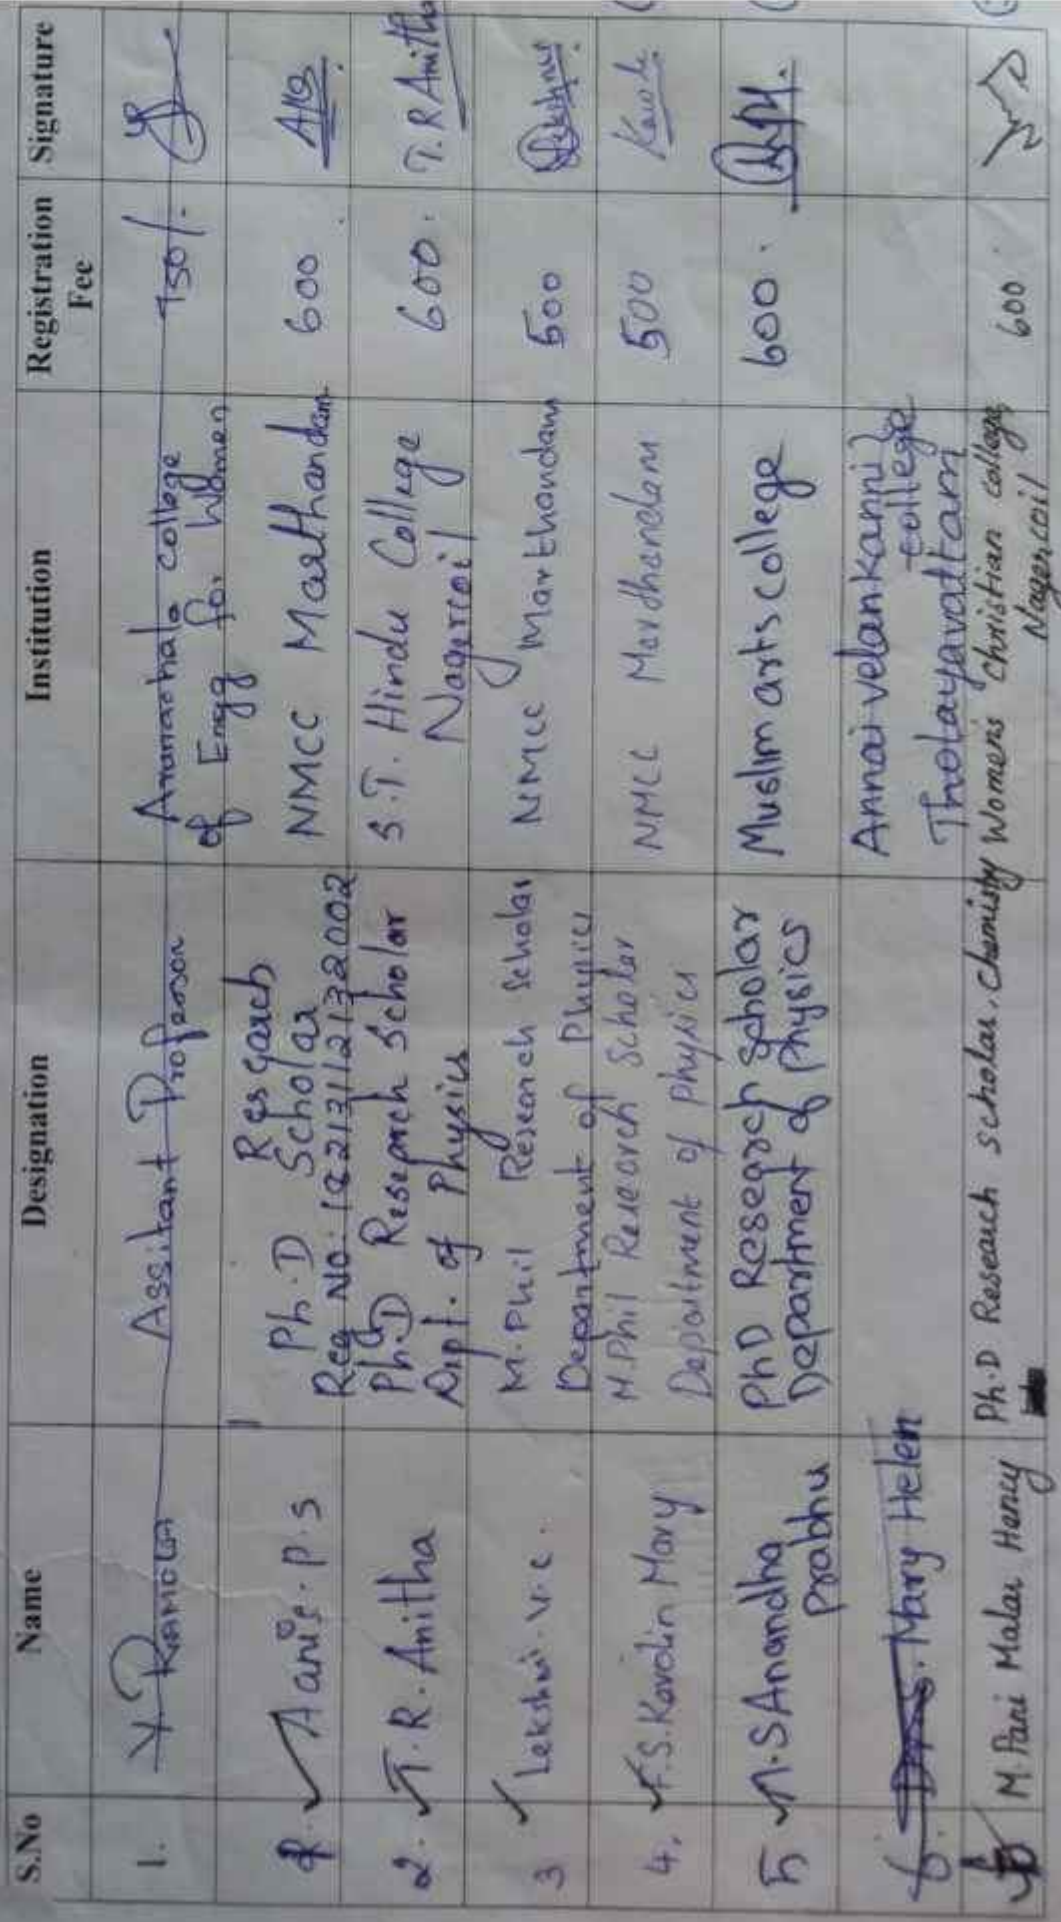 S.No Name Designation Institution Registration Fee Signature
1. Y. Ramola Assitant Professor Arunachala college of Engg for Women 750/-
Aanie. P. S Ph.D Research Scholar Reg No: 18213112132002 NMCC Marthandam 600
2. T. R. Anitha Ph.D Research Scholar Dept. of Physics S.T. Hindu College Nagercoil 600. T.R Anitha
3 Lekshmi. V. C. M. Phil Research Scholar Department of Physics NMCC Marthandam 500
4. F.S. Karolin Mary M.Phil Research Scholar Department of Physics NMCC Mardhandam 500
5 S Anandha prabhu PhD Research Scholar Department of Physics Muslim arts college 600.
6. Mary Helen Annai velankanni college Tholayavattam
M. Pani Malar Hency Ph.D Research scholar, Chemistry Women's Christian College Nagercoil 600